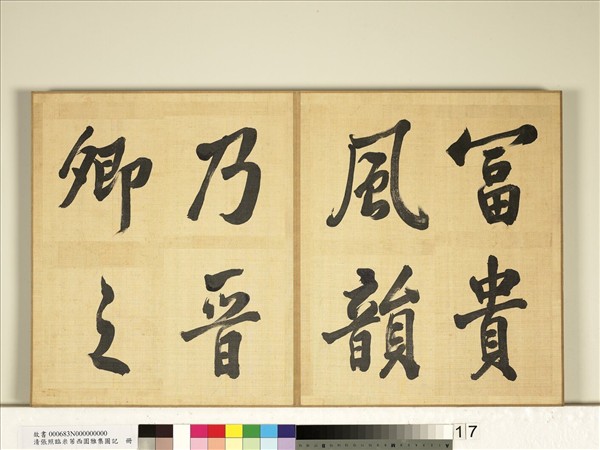 冨貴
風韻
乃晉
卿之
故書 000683N000000000
清張照臨米芾西園雅集圖記 冊
17